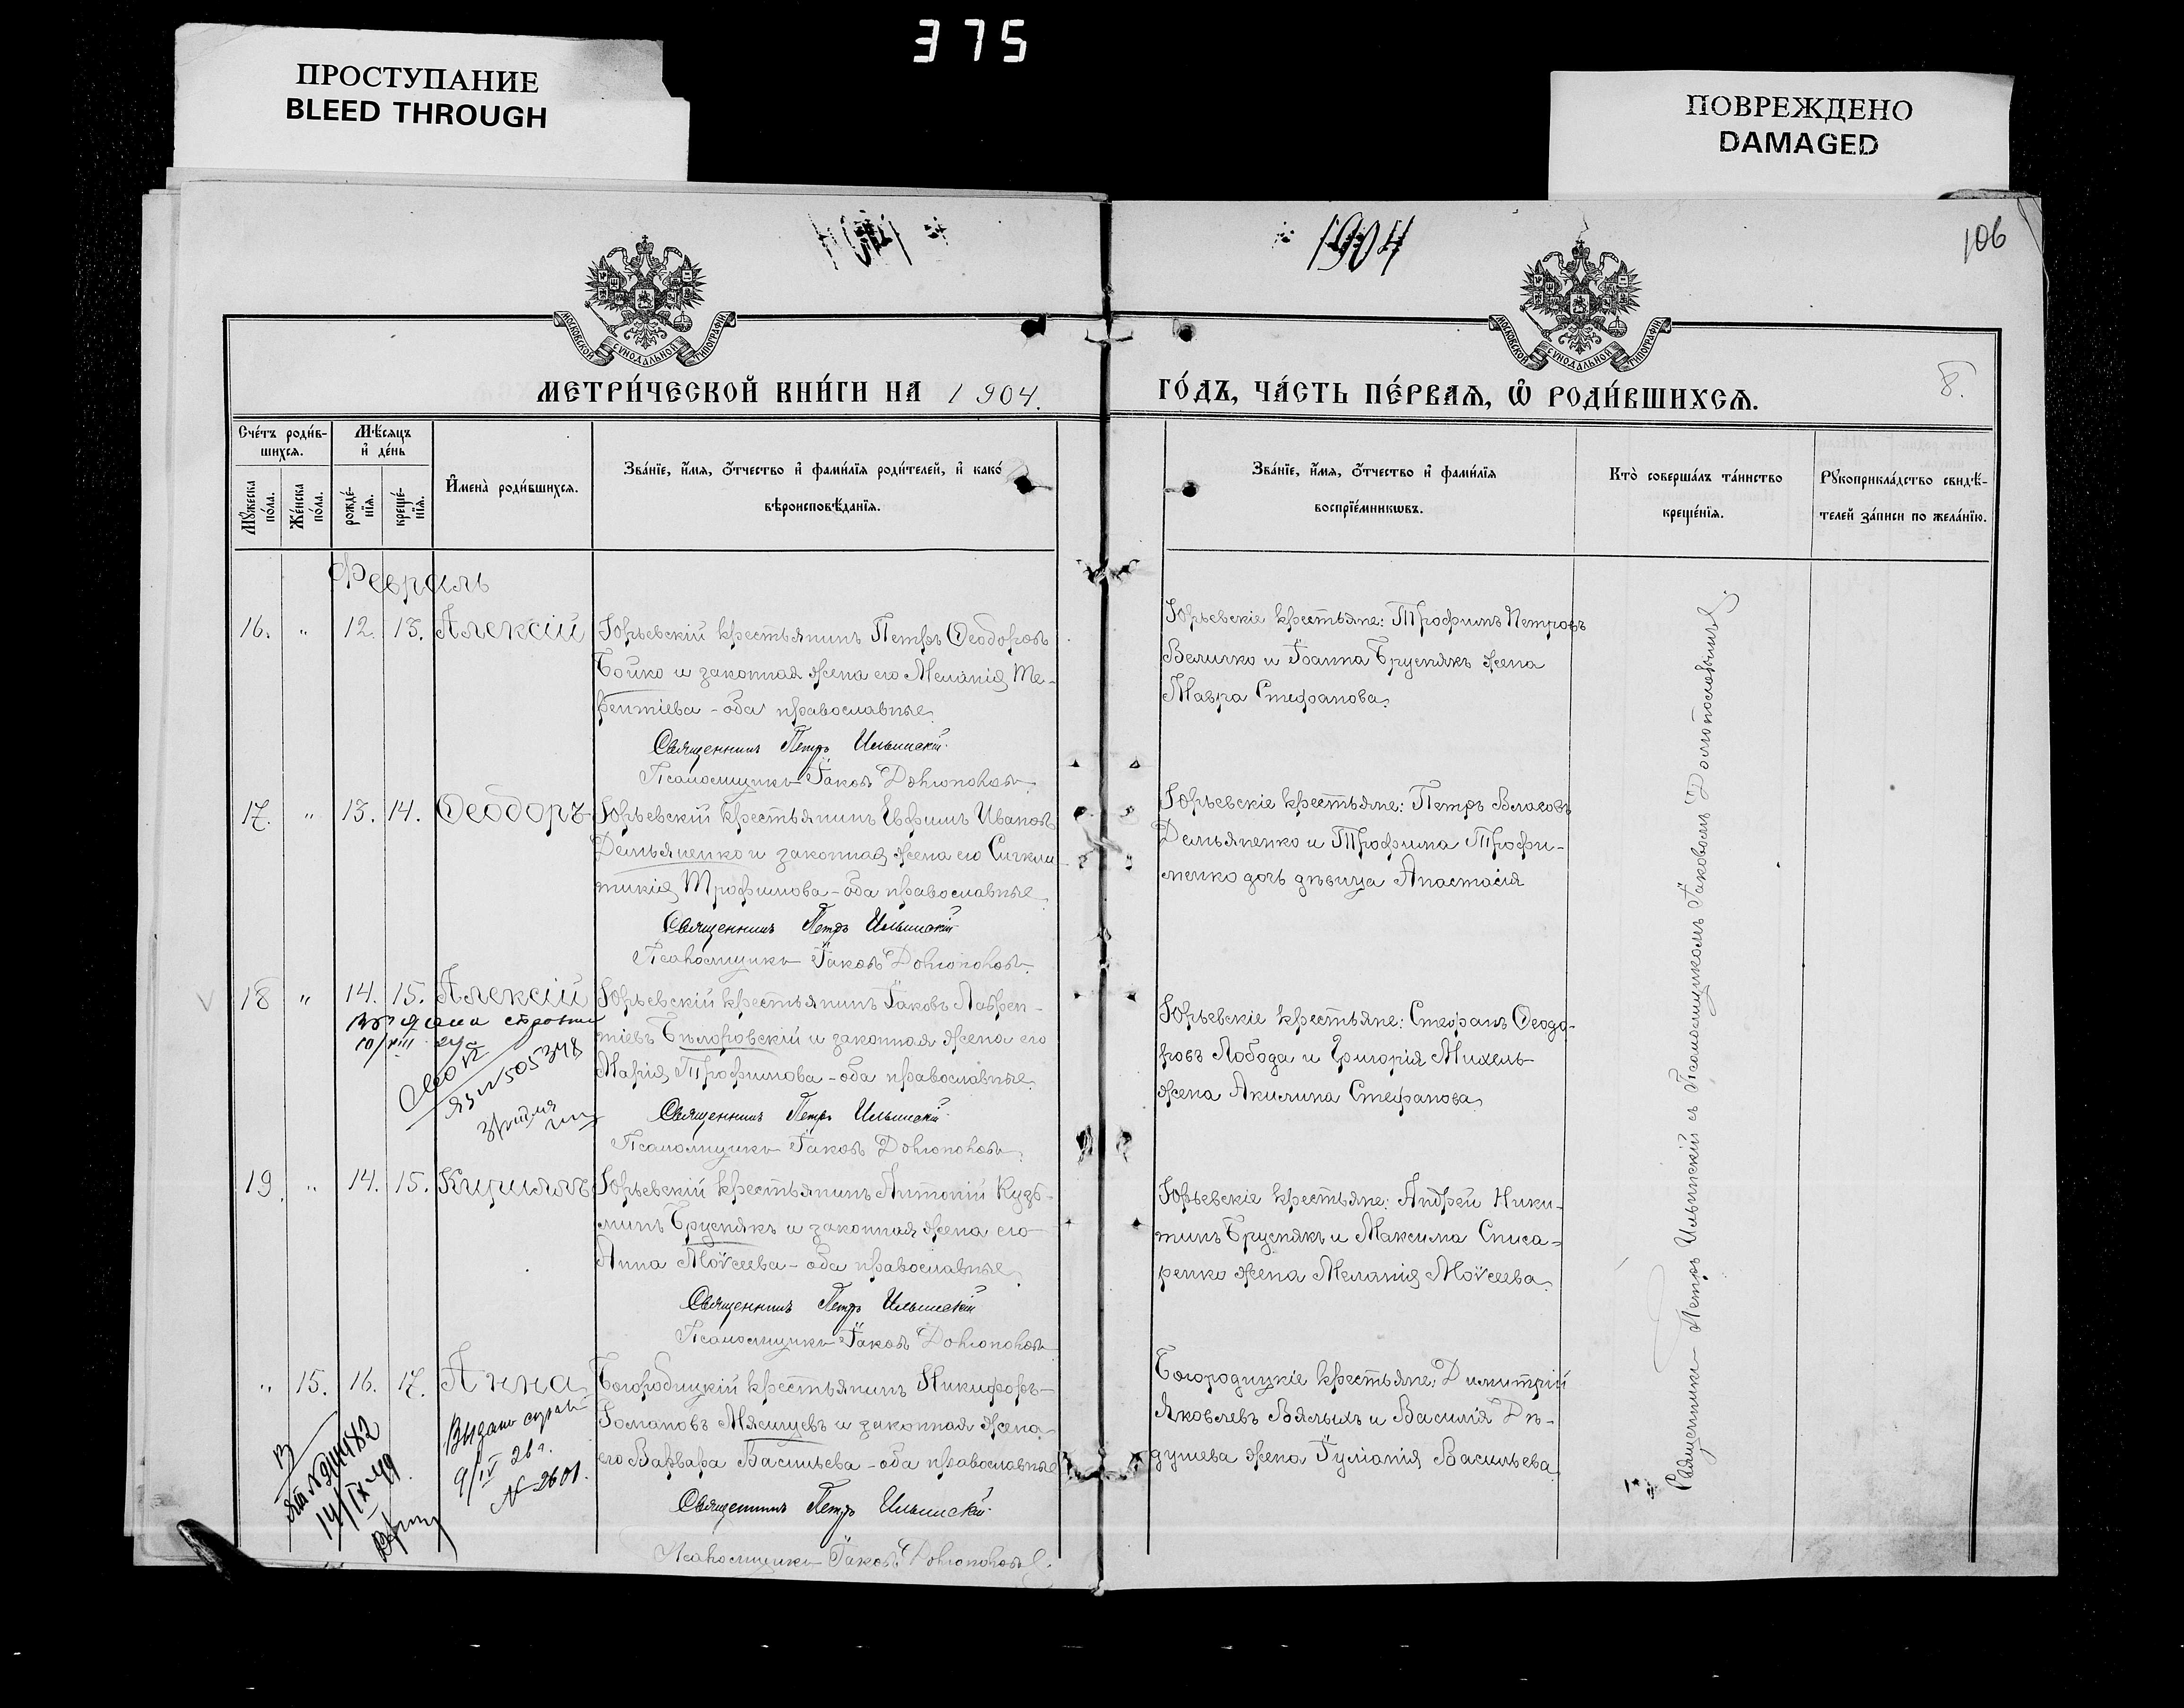 375
ПРОСТУПАНИЕ
BLEED THROUGH
ПОВРЕЖДЕНО
DAMAGED
1904
106
МОСКОВСКОЙ СѴНОДАЛЬНОЙ ТИПОГРАФІИ
МОСКОВСКОЙ СѴНОДАЛЬНОЙ ТИПОГРАФІИ
МЕТРИ́ЧЕСКОЙ КНИ́ГИ НА 1904.
ГО́ДЪ, ЧА́СТЬ ПЕ́РВАѦ, Ѿ РОДИ́ВШИХСѦ.
8.
Сче́тъ роди́в-
шихся.
Мꙋ́жеска
по́ла.
Же́нска
по́ла.
Мѣ́сяцъ
и҆ де́нь
рожде́-
нїя.
креще́-
нїя.
И҆мена̀ роди́вшихся.
Зва́нїе, и҆́мя, ѻ҆́тчество и҆ фами́лїя роди́телей, и҆ како́гѡ
вѣроисповѣ́данїя.
Зва́нїе, и҆́мя, ѻ҆́тчество и҆ фами́лїя
воспрїе́мникѡвъ.
Кто̀ соверша́лъ та́инство
креще́нїя.
Рꙋкоприкла́дство свидѣ́-
телей за́писи по жела́нїю.
Февраль
16. " 12. 13. Алексій
Юрьевскій крестьянинъ Петръ Ѳеодоровъ
Бойко и законная жена его Меланія Те-
рентіева - оба православные.
Священникъ Петръ Ильинскій
Псаломщикъ Іаковъ
Юрьевскіе крестьяне: Трофимъ Петровъ
Величко и Іоанна Бруснякъ жена
Мавра Стефанова.
17. " 13. 14. Ѳеодоръ
Юрьевскій крестьянинъ Евфимъ Ивановъ
Демьяненко и законная жена его Сигкли-
тикія Трофимова - оба православные.
Священникъ Петръ Ильинскій
Псаломщикъ Іаковъ
Юрьевскіе крестьяне: Петръ Власовъ
Демьяненко и Трофима Трофи-
менко дочь дѣвица Анастасія
18 " 14. 15. Алексій
Юрьевскій крестьянинъ Іаковъ Лаврен-
тіевъ Бѣлоровскій и законная жена его
Марія Трофимова - оба православные.
Священникъ Петръ Ильинскій
Псаломщикъ Іаковъ
№ 505348
Юрьевскіе крестьяне: Стефанъ Ѳеодо-
ровъ Лобода и Григорія Михель
жена Акилина Стефанова.
19. " 14. 15. Кириллъ
Юрьевскій крестьянинъ Антоній Кузь-
минъ Бруснякъ и законная жена его
Анна Моѵсеева - оба православные.
Священникъ Петръ Ильинскій
Псаломщикъ Іаковъ
Юрьевскіе крестьяне: Андрей Ники-
тинъ Бруснякъ и Максима Списа-
ренко жена Меланія Моѵсеева.
" 15. 16. 17. Анна
Богородицкій крестьянинъ Никифоръ
Романовъ Мясищевъ и законная жена
его Варвара Васильева - оба православные
Священникъ Петръ Ильинскій
Псаломщикъ Іаковъ
14/IX-49
Выдана справ
9/IV 26 г.
№ 2601.
Богородицкіе крестьяне: Димитрій
Яковлевъ Вялыхъ и Василія Дѣ-
душева жена Іуліанія Васильева.
Священникъ Петръ Ильинскій съ Псаломщикомъ Іаковомъ